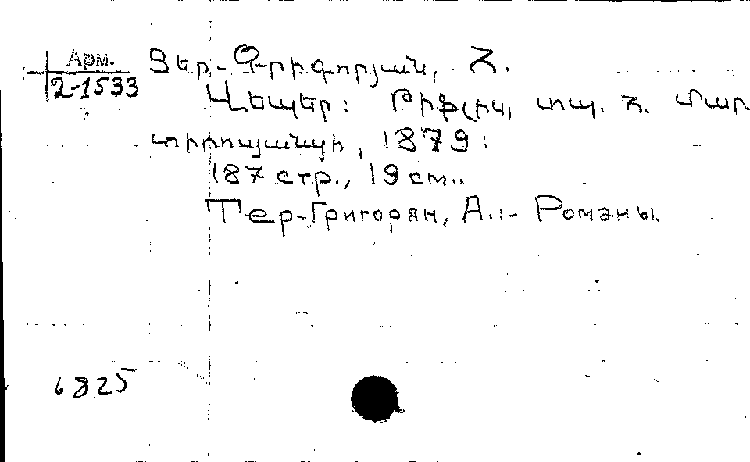 Арм.
2-1533
Տեր-Գրիգորյան, Հ.
Վեպեր: Թիֆլիս, տպ. Հ. Մար
տիրոսյանցի, 1879:
187 стр., 19 см..
Тер-Григорян, А.:- Романы.
6825